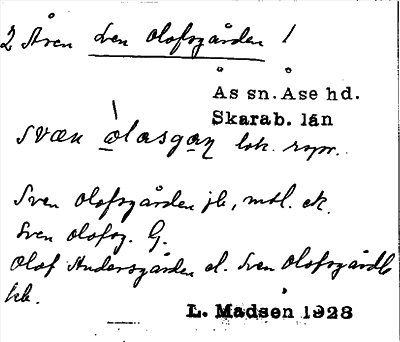 2 Även Sven Olofsgården 1
Ås sn. Åse hd.
Skarab. län
svæn olasgaɳ lok. repr.
Sven Olofsgården jb, mtl. ek.
Sven Olofsg. G.
Olof Andersgården el. Sven Olofsgård
kb.
L. Madsén 1928